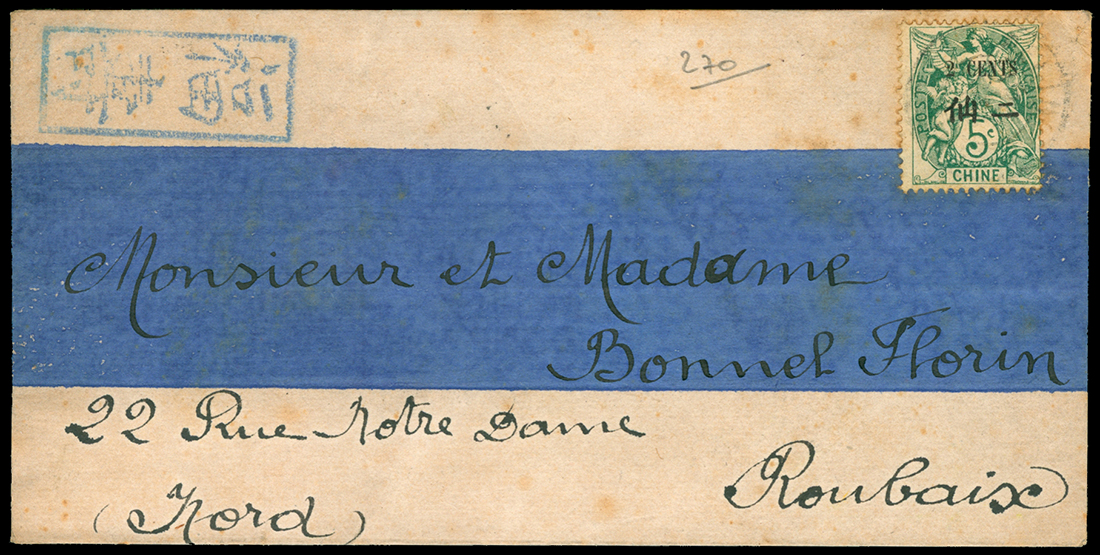 270
POSTE FRANÇAISE
2 CENTS
仙二
5c
CHINE
Monsieur et Madame
Bonnel Florin
22 Rue Notre Dame
Roubaix
(Nord)